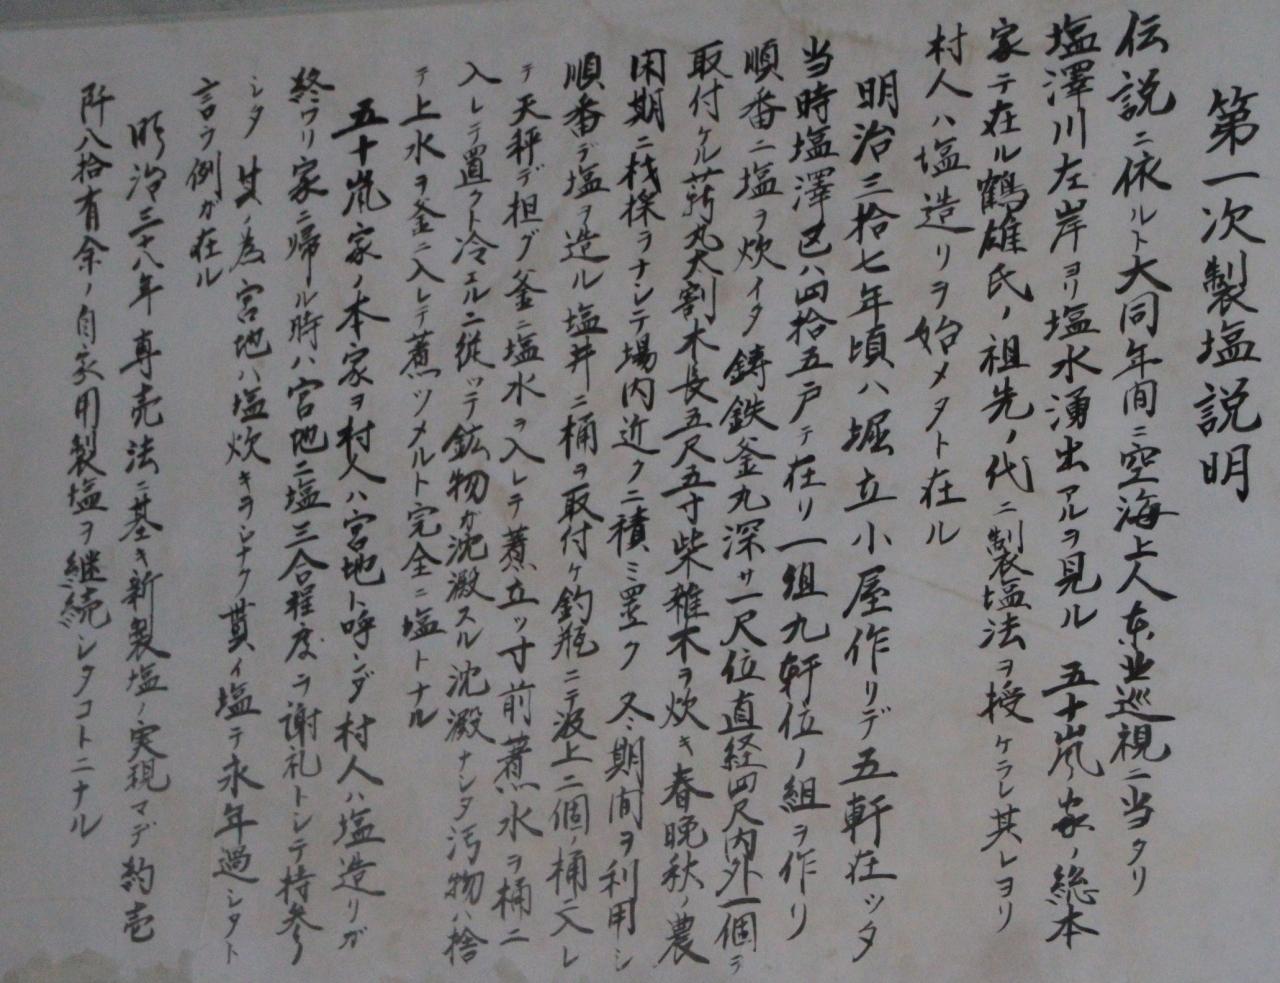 第一次製塩説明
伝説ニ依ルト大同年間ニ空海上人東北巡視ニ当タリ
塩澤川左岸ヨリ塩水湧出アルヲ見ル 五十嵐家ノ総本
家テ在ル鶴雄氏ノ祖先ノ代ニ製塩法ヲ授ケラレ其レヨリ
村人ハ塩造リヲ始メタト在ル
明治三拾七年頃ハ堀立小屋作リデ五軒在ッタ
当時塩澤区ハ四拾五戸テ在リ一組九軒位ノ組ヲ作リ
順番ニ塩ヲ炊イタ 鋳鉄釜丸深サ一尺位直経四尺内外一個ヲ
取付ケル薪丸太割木長五尺五寸柴雑木ヲ炊キ春晩秋ノ農
閑期ニ伐採ヲナシテ場内近クニ積ミ置ク 冬期間ヲ利用シ
順番デ塩ヲ造ル 塩井ニ桶ヲ取付ケ釣瓶ニテ汲上二個ノ桶ニ入レ
テ天秤デ担グ釜ニ塩水ヲ入レテ煮立ッ寸前煮水ヲ桶ニ
入レテ置クト冷エルニ従ッテ鉱物ガ沈澱スル 沈澱ナシタ汚物ハ捨
テ上水ヲ釜ニ入レテ煮ツメルト完全ニ塩トナル
五十嵐家ノ本家ヲ村人ハ宮地ト呼ンダ 村人ハ塩造リガ
終ワリ家ニ帰ール時ハ宮地ニ塩三合程度ヲ謝礼トシテ持参
シタ 其ノ為宮地ハ塩炊キヲシナク貰イ塩テ永年過シタト
言ラ例ガ在ル
明治三十八年専売法ニ基キ新製塩ノ実現マデ約壱
阡八拾有余ノ自家用製塩ヲ継続シタコトニナル